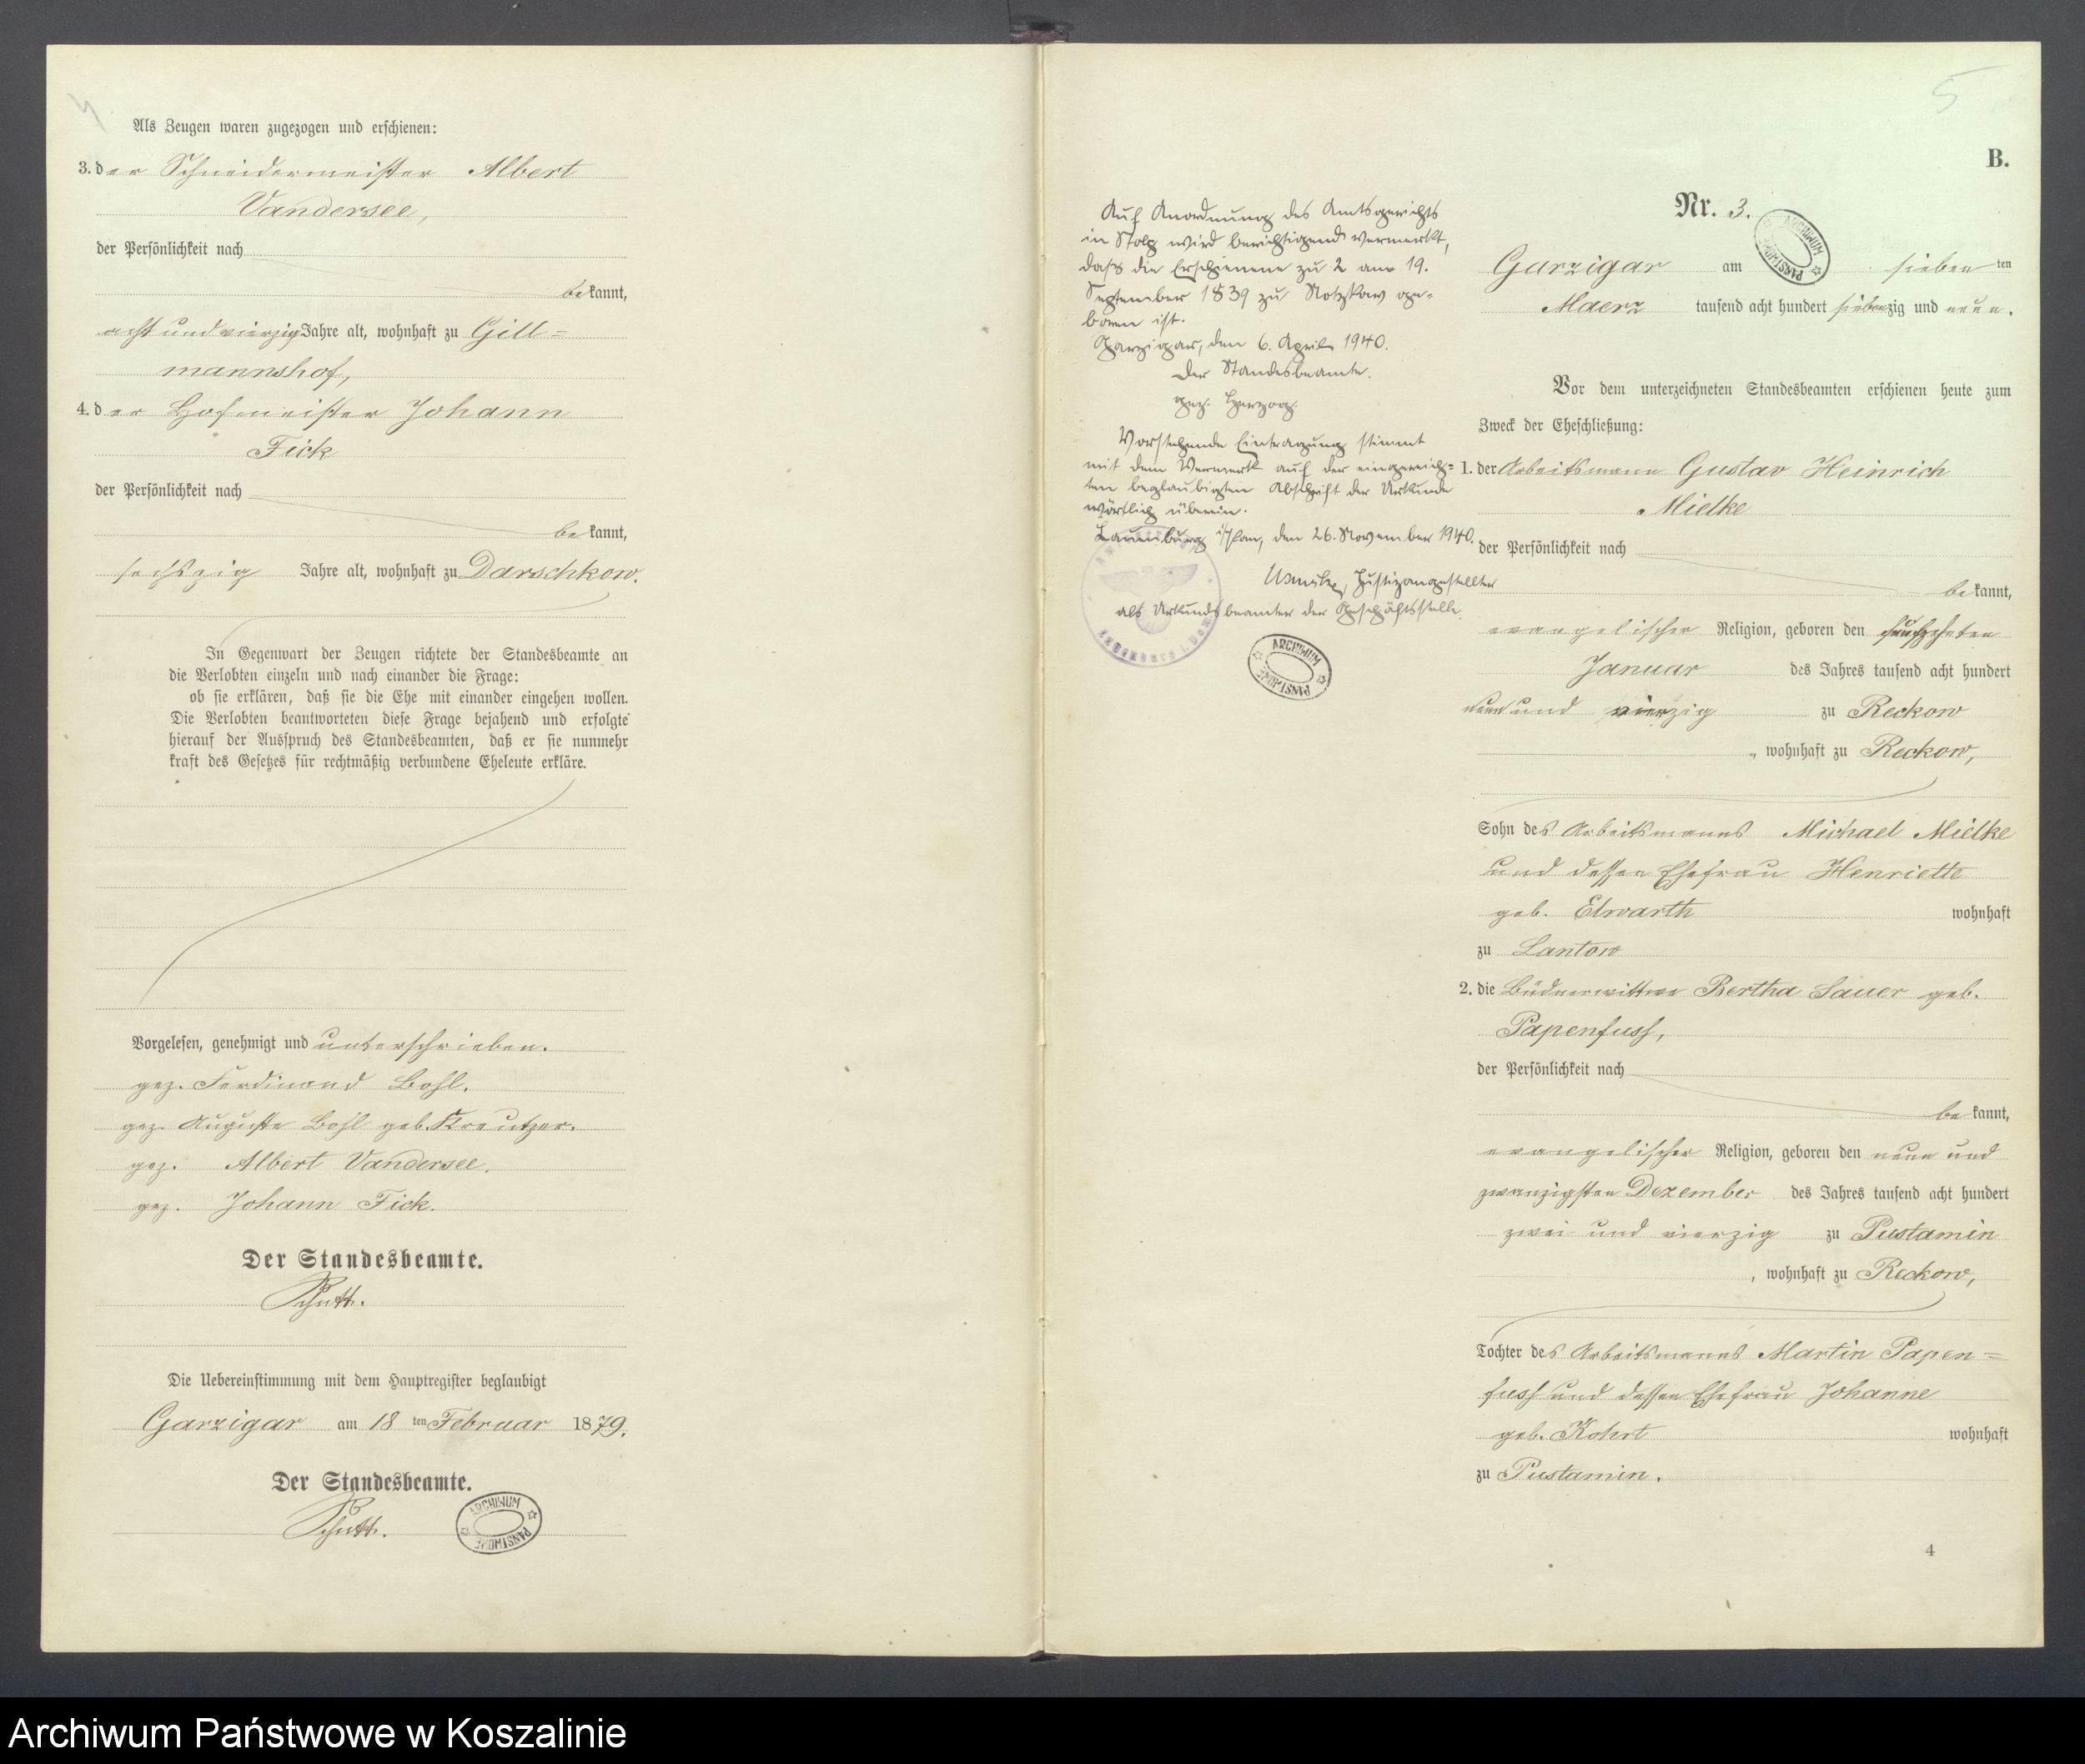 4
Als Zeugen waren zugezogen und erschienen:
3. der Schneidermeister Albert
Vandersee,
der Persönlichkeit nach
bekannt,
acht und vierzig Jahre alt, wohnhaft zu Gill=
mannshof,
4. der Hofmeister Johann
Fick
der Persönlichkeit nach
bekannt,
sechszig Jahre alt, wohnhaft zu Darschkow.
In Gegenwart der Zeugen richtete der Standesbeamte an
die Verlobten einzeln und nach einander die Frage:
ob sie erklären, daß sie die Ehe mit einander eingehen wollen.
Die Verlobten beantworteten diese Frage bejahend und erfolgte
hierauf der Ausspruch des Standesbeamten, daß er sie nunmehr
kraft des Gesetzes für rechtmäßig verbundene Eheleute erkläre.
Vorgelesen, genehmigt und unterschrieben.
gez. Ferdinand Bohl.
gez. Auguste Bohl geb. Kreutzer.
gez. Albert Vandersee.
gez. Johann Fick.
Der Standesbeamte.
Schutt.
Die Uebereinstimmung mit dem Hauptregister beglaubigt
Garzigar am 18 ten Februar 1879.
Der Standesbeamte.
Schutt.
ARCHIWUM PAŃSTWOWE
5
B.
Auf Anordnung des Amtsgerichts
in Stolp wird berichtigend vermerkt,
daß die Erschienene zu 2 am 19.
September 1839 zu Notzkow ge=
boren ist.
Garzigar, den 6. April 1940.
Der Standesbeamte.
gez. Herzog.
Vorstehende Eintragung stimmt
mit dem Vermerk auf der eingereich=
ten beglaubigten Abschrift der Urkunde
wörtlich überein.
Lauenburg i/Pom, den 26. November 1940.
Justizangestellter
als Urkundsbeamter der Geschäftsstelle.
ARCHIWUM PAŃSTWOWE
Nr. 3.
ARCHIWUM PAŃSTWOWE
Garzigar am sieben ten
Maerz tausend acht hundert siebenzig und neun.
Vor dem unterzeichneten Standesbeamten erschienen heute zum
Zweck der Eheschließung:
1. der Arbeitsmann Gustav Heinrich
Mielke
der Persönlichkeit nach
bekannt,
evangelischer Religion, geboren den fünfzehnten
Januar des Jahres tausend acht hundert
neun und vierzig zu Reckow
, wohnhaft zu Reckow,
Sohn des Arbeitsmanns Michael Mielke
und dessen Ehefrau Henriette
geb. Elwarth wohnhaft
zu Lantow
2. die Büdnerwittwe Bertha Sauer geb.
Papenfuss,
der Persönlichkeit nach
bekannt,
evangelischer Religion, geboren den neun und
zwanzigsten Dezember des Jahres tausend acht hundert
zwei und vierzig zu Pustamin
, wohnhaft zu Reckow,
Tochter des Arbeitsmanns Martin Papen=
fuss und dessen Ehefrau Johanne
geb. Kohrt wohnhaft
zu Pustamin.
4
Archiwum Państwowe w Koszalinie